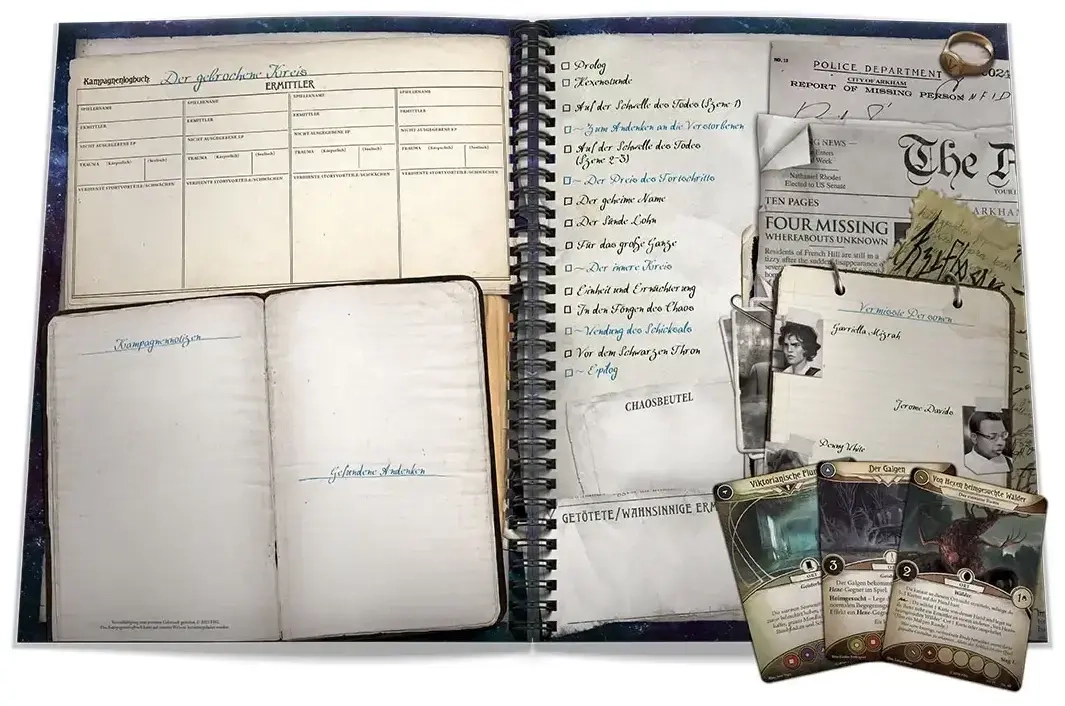 Kampagnenlogbuch: Der gebrochene Kreis
ERMITTLER
SPIELERNAME
SPIELERNAME
SPIELERNAME
SPIELERNAME
ERMITTLER
ERMITTLER
ERMITTLER
ERMITTLER
NICHT AUSGEGEBENE EP
NICHT AUSGEGEBENE EP
NICHT AUSGEGEBENE EP
NICHT AUSGEGEBENE EP
TRAUMA (Körperlich) (Seelisch)
TRAUMA (Körperlich) (Seelisch)
TRAUMA (Körperlich) (Seelisch)
TRAUMA (Körperlich) (Seelisch)
VERDIENTE STORYVORTEILE/SCHWÄCHEN
VERDIENTE STORYVORTEILE/SCHWÄCHEN
VERDIENTE STORYVORTEILE/SCHWÄCHEN
VERDIENTE STORYVORTEILE/SCHWÄCHEN
Kampagnennotizen
Gefundene Andenken
Prolog
Hexenstunde
Auf der Schwelle des Todes (Szene 1)
~ Zum Andenken an die Verstorbenen
Auf der Schwelle des Todes
(Szene 2-3)
~ Der Preis des Fortschritts
Der geheime Name
Der Sünde Lohn
Für das große Ganze
~ Der innere Kreis
Einheit und Ernüchterung
In den Fängen des Chaos
~ Wendung des Schicksals
Vor dem Schwarzen Thron
~ Epilog
CHAOSBEUTEL
GETÖTETE/WAHNSINNIGE ERM
NO. 13
POLICE DEPARTMENT
CITY OF ARKHAM
REPORT OF MISSING PERSON
G NEWS —
Enters
Week
Nathaniel Rhodes
Elected to US Senate
The
TEN PAGES
ARKHAM
FOUR MISSING
WHEREABOUTS UNKNOWN
Residents of French Hill are still in a
tizzy after the sudden disappearance of
Vermisste Personen
Gavriella Mizrah
Jerome Davids
Penny White
Viktorianische Flur
ORT
Der Galgen
3
Der Galgen bekomm
Hexe-Gegner im Spiel.
Heimgesucht – Lege
normalen Begegnungs
Von Hexen heimgesuchte Wälder
Der einsame Baum
2
ORT
Wälder.
1